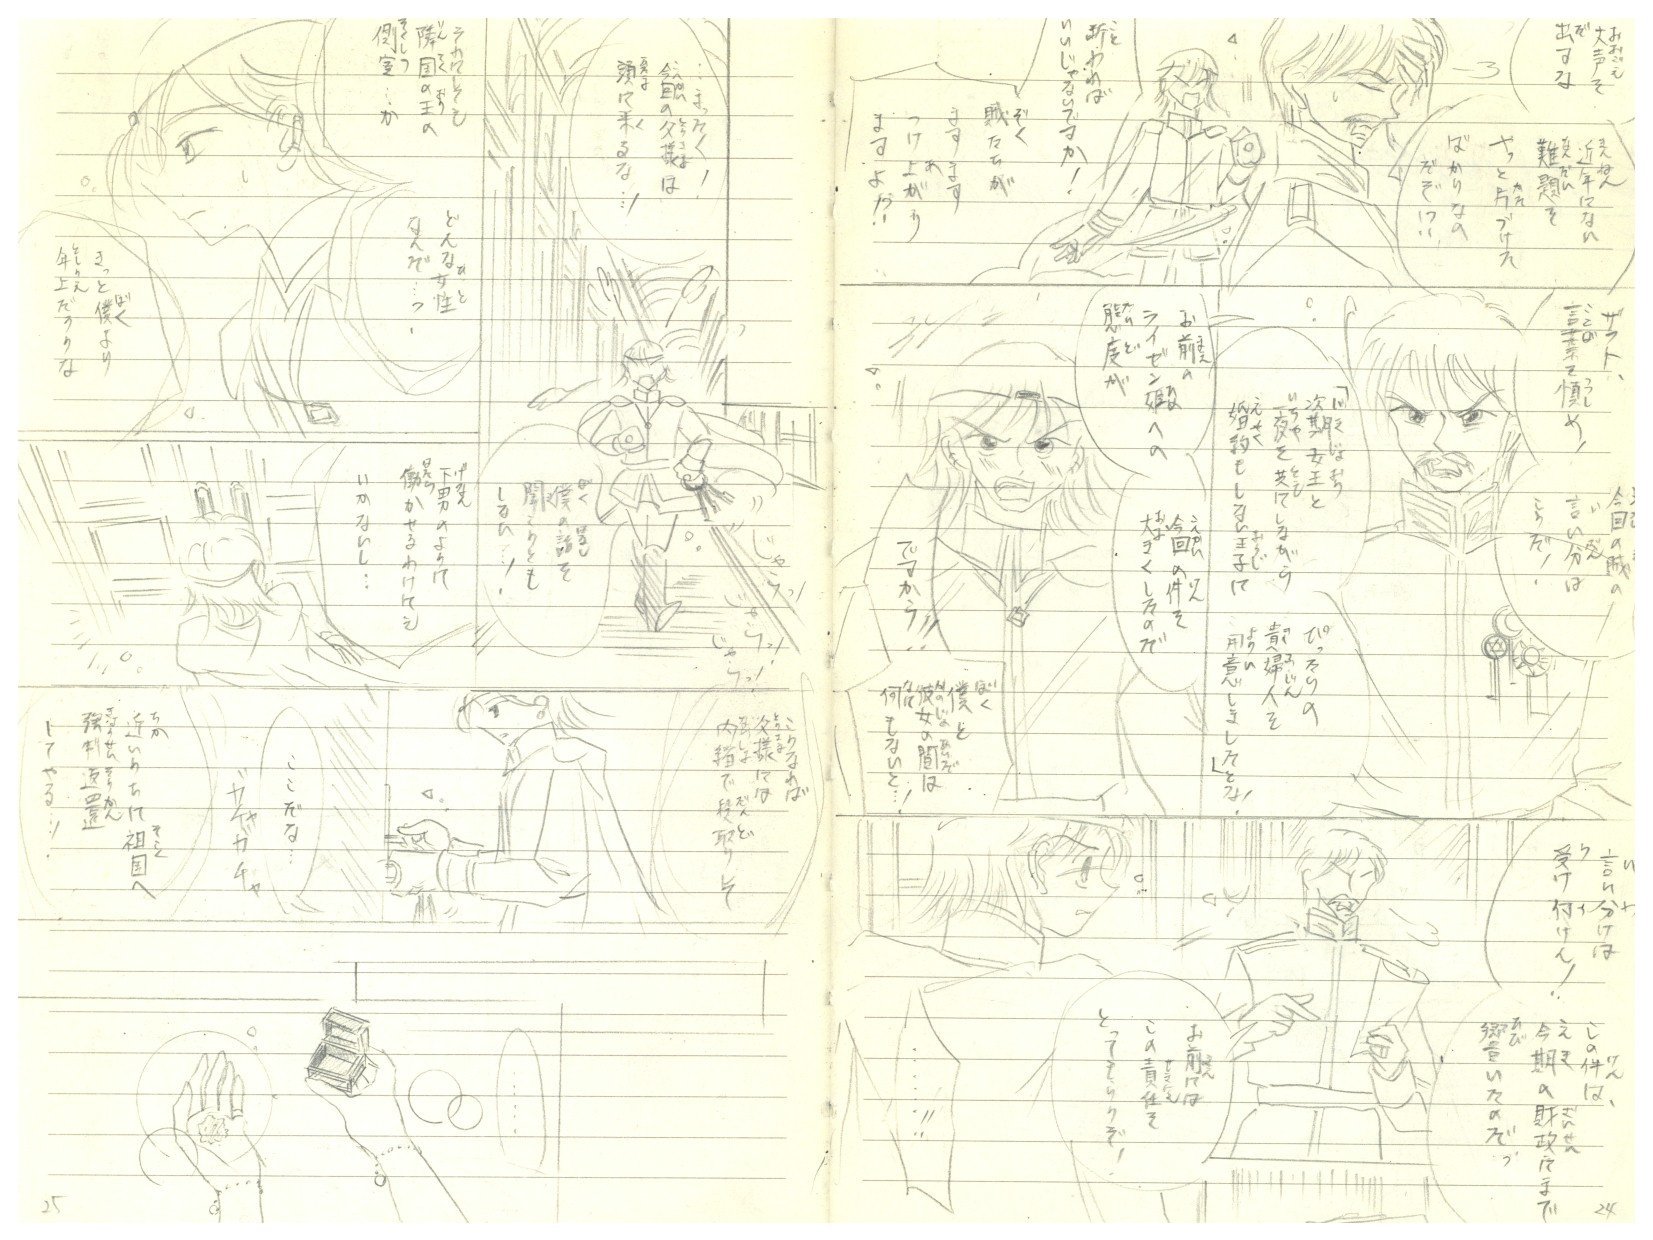 大声を
出すな
近年にない
難題を
やっと片づけた
ばかりなの
だぞ!?
断わば
いいじゃないですか!
賊たちが
ますます
つけ上がり
ますよ!?
言葉を慎め!
今回の賊の
言い分は
こうだ!
次期女王と
一夜を共にしながら
婚約もしない王子に
ぴったりの
貴婦人を
用意しましたとな!
お前の
ライゼン姫への
態度が
今回の件を
大きくしたのだ
ですから!!
僕と
彼女の間は
何もないと…!
言い分けは
受け付けん!
この件は、
今期の財政にまで
響いたのだ
お前には
この責任を
とってもらうぞ!
………!!
24
…まったく!
今回の父様は
頭に来るな…!
僕の話を
聞こうとも
しない…!
じゃらっ!
じゃらっ!
じゃらっ!
それにしても
隣国の王の
側室…か
どんな女性
なんだ…?
きっと僕より
年上だろうな
下男のように
働かせるわけにも
いかないし…
こうなれば
父様には
内緒で段取りを
ここだな…
ガチャガチャ
近いうちに祖国へ
強制送還
してやる…!
……
25